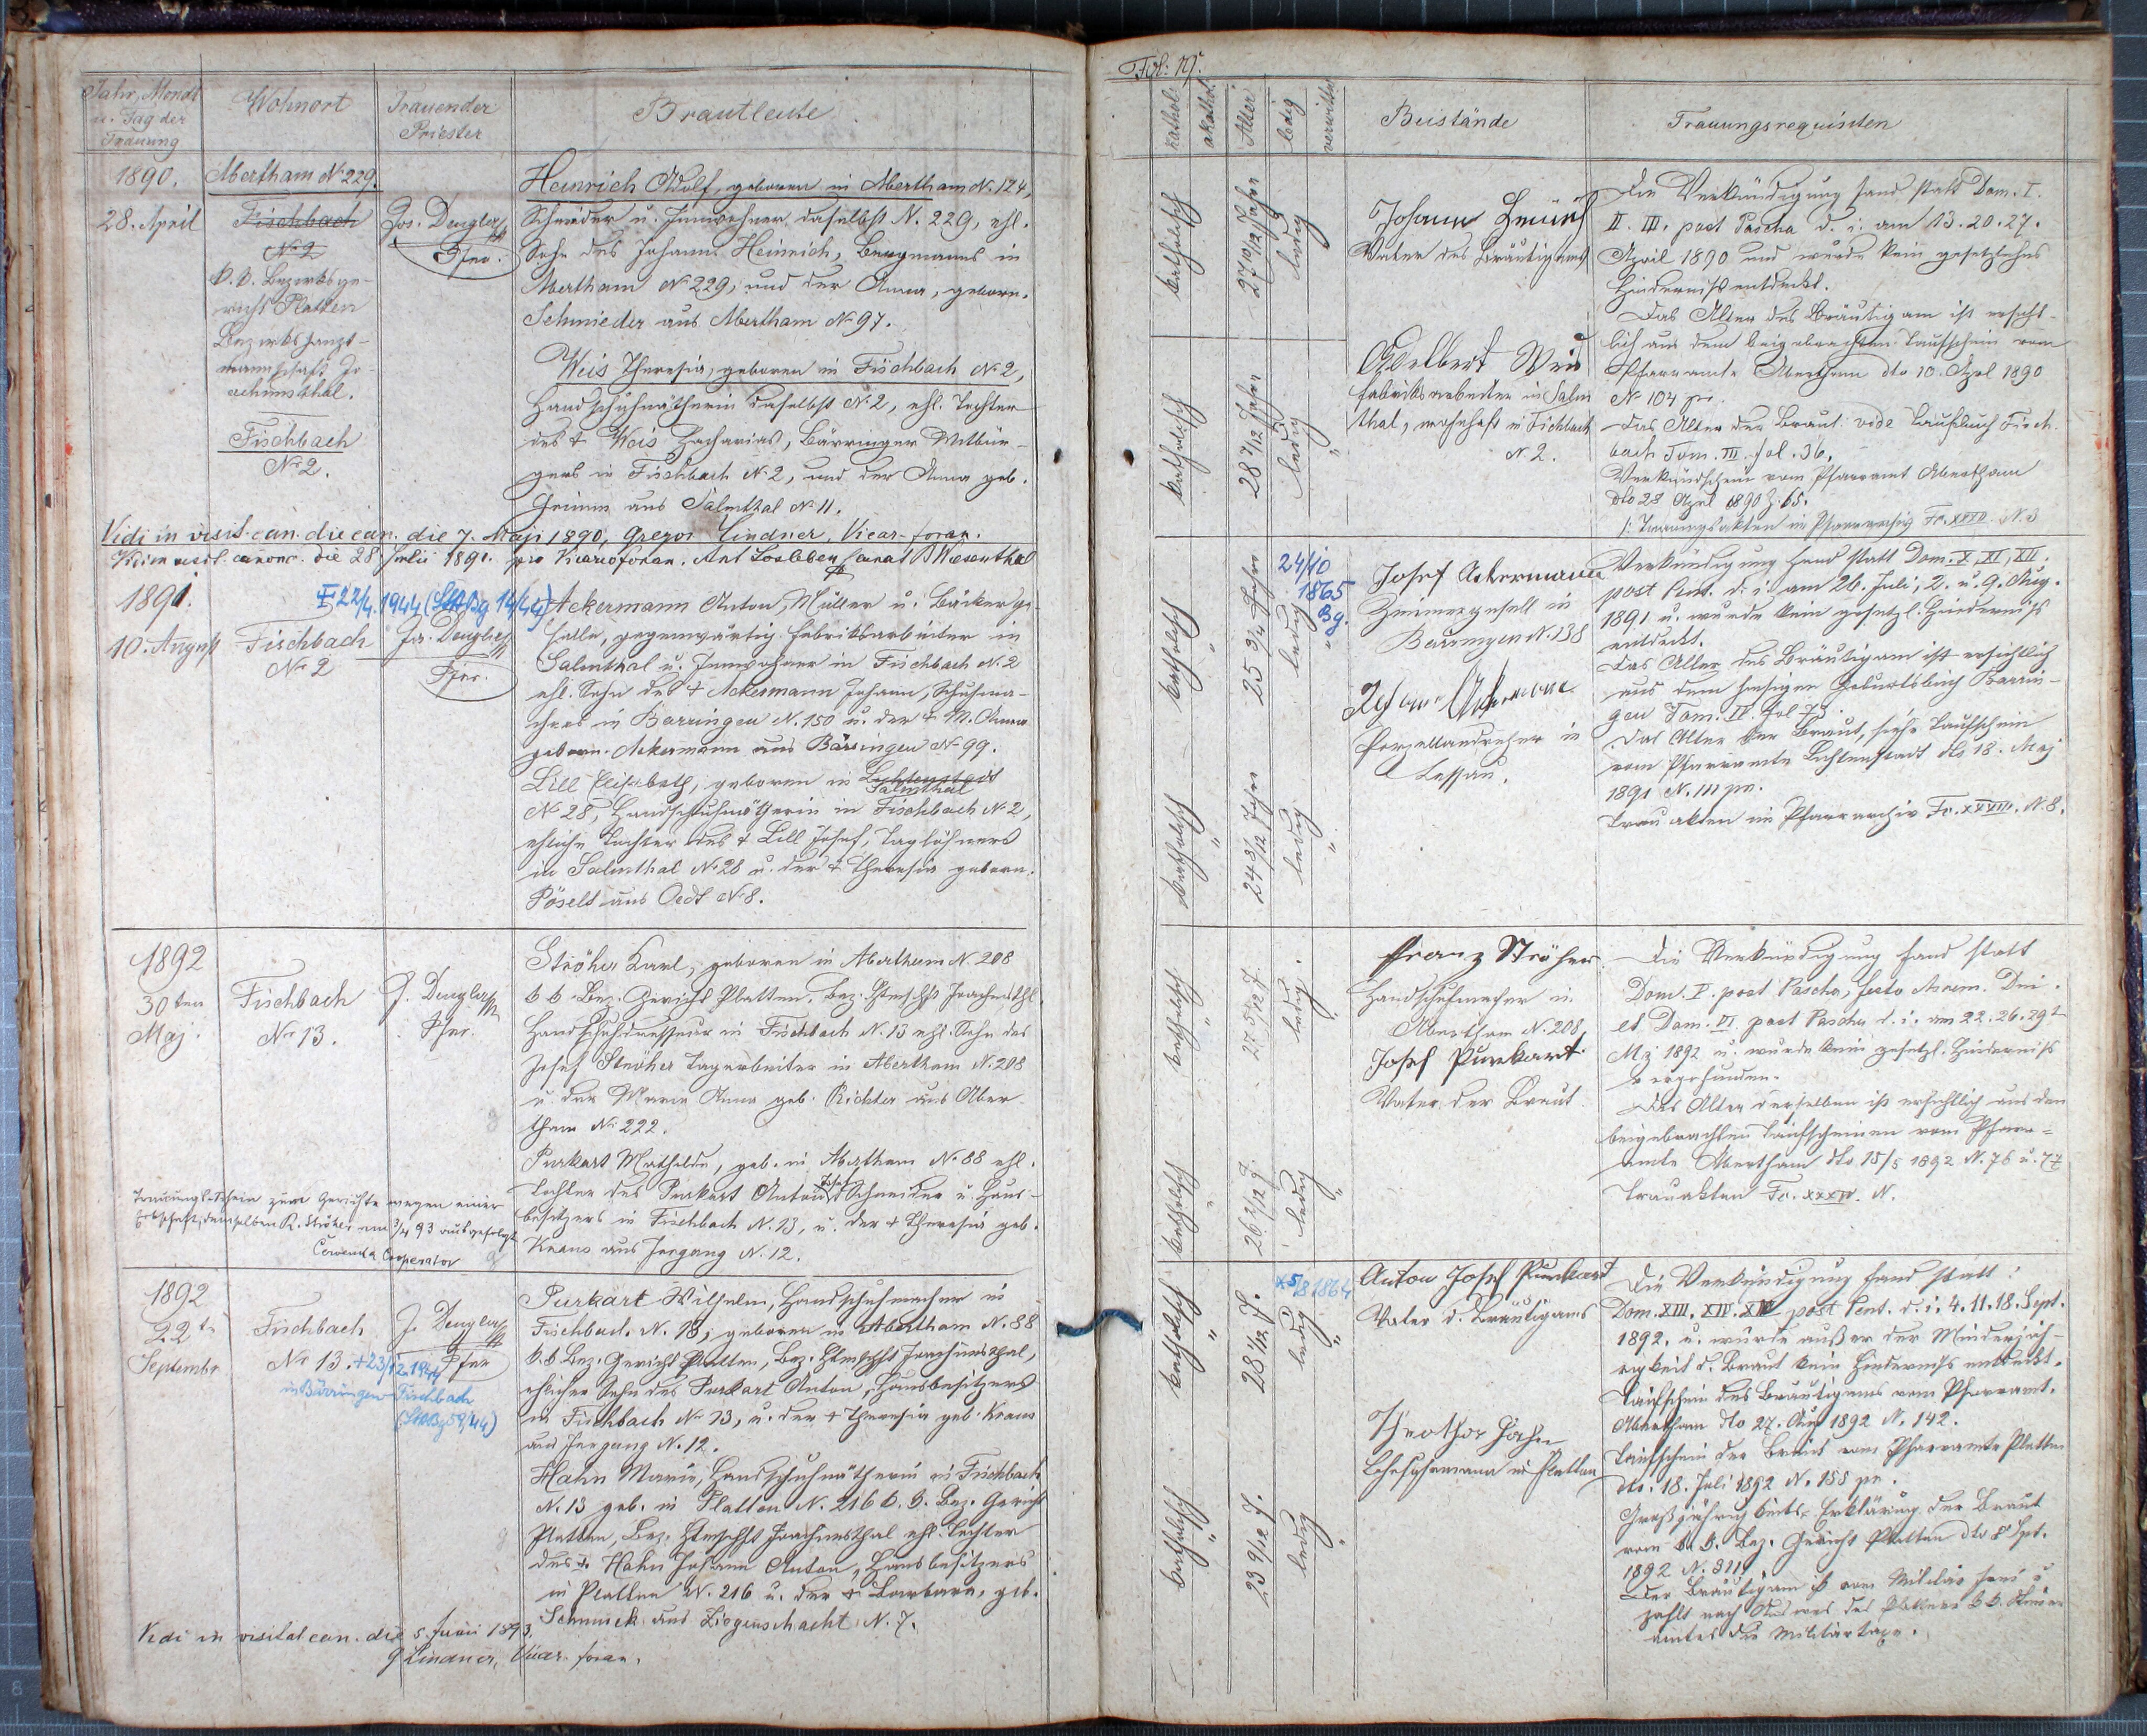 Fol: 19.
Jahr, Monat
u. Tag der
Trauung
Wohnort
Trauender
Priester
Brautleute
kathol.
akathol.
Alter
ledig
verwittw.
Beistände
Trauungsrequisiten
1890.
28. April
Abertham N. 229.
Fischbach
N. 2
k. k. Bezirksge-
richt Platten
Bezirkshaupt-
mannschaft Jo-
achimsthal.
Fischbach
Nr. 2.
Jos. Dengler
Pfrr.
Heinrich Adolf, geboren in Abertham N. 124,
Schneider u. Inwohner daselbst N. 229, ehl.
Sohn des Johann Heinrich, Bergmanns in
Abertham N. 229, und der Anna, geborn.
Schmieder aus Abertham N. 97.
Weis Theresia, geboren in Fischbach N. 2,
Handschuhnätherin daselbst N. 2, ehl. Tochter
des † Weis Zacharias, Bärringer Mitbür-
gers in Fischbach N. 2, und der Anna geb.
Grimm aus Salmthal N. 11.
katholisch
27 10/12 Jahre
ledig
katholisch
28 7/12 Jahre
ledig
Johann
Vater des Bräutigams
Adelbert Weis
Fabriksarbeiter in Salm
thal, wohnhaft in Fischbach
N. 2.
Die Verkündigung fand statt Dom. I.
II. III. post Pascha d. i. am 13. 20. 27.
April 1890 und wurde kein gesetzliches
Hinderniß entdeckt.
Das Alter des Bräutigam ist ersicht-
lich aus dem beigebrachten Taufschein vom
Pfarramte Abertham dto 10. Apl 1890
N. 104 pr.
Das Alter der Braut: vide Taufbuch Fisch-
bach Tom. III. fol. 36.
Verkündschein vom Pfarramt Abertham
dto 28 April 1890 Z. 65.
Trauungsakten im Pfarrarchiv Fc. XXXII. N. 3
Vidi in visit. can. die can. die 7. Maji 1890, Gregor Lindner, Vicar. foran.
Vidi in visit. canonc. die 28 Julii 1891. pro Vicario foran. Ant Wiesenthal
1891.
10. August
Fischbach
Nr 2
Jos. Dengler
Pfrr.
† 22/4. 1944 (StABg 14/44)
Ackermann Anton, Müller u. Bäckerge-
selle, gegenwärtig Fabriksarbeiter in
Salmthal u. Inwohner in Fischbach N. 2
ehl. Sohn des † Ackermann Johann, Schuhma-
chers in Barringen N. 150 u. der † M. Anna
geborn. Ackermann aus Bärringen N. 99.
Lill Elisabeth, geboren in Lichtenstadt
Salmthal
N. 28, Handschuhnätherin in Fischbach N. 2,
eheliche Tochter des † Lill Josef, Taglöhners
in Salmthal N. 28 u. der † Theresia geborn.
Pöselt aus Oedt N. 8.
katholisch
25 3/4 Jahre
24/10
1865
Bg.
ledig
katholisch
24 3/12 Jahre
ledig
Josef Ackermann
Zimmergesell in
Barringen N. 138
Johann Ackermann
Porzellandreher in
Lessau.
Verkündigung fand statt Dom. X, XI, XII.
post Pent. d. i. am 26. Juli, 2. u. 9. Aug.
1891 u. wurde kein gesetzl. Hinderniß
entdeckt.
Das Alter des Bräutigam ist ersichtlich
aus dem hiesigen Geburtsbuch Barrin-
gen Tom. IV. fol 73.
Das Alter der Braut, siehe Taufschein
vom Pfarramte Lichtenstadt dto 18. Maj
1891 N. 111 pr.
Trauakten im Pfarrarchiv Fc. XXXIII. N. 8.
1892
30ten
Maj.
Fischbach
Nr 13.
J. Dengler
Pfrr.
Ströher Karl, geboren in Abertham N. 208
k k Bez. Gericht Platten, Bez. Htmschft Joachmthl
Handschuhdresseur in Fischbach N. 13 ehl. Sohn des
Josef Ströher Tagarbeiter in Abertham N. 208
u. der Maria Anna geb. Richter aus Aber-
tham N. 222.
Purkart Mathilde, geb. in Abertham N. 88 ehl.
Tochter des Purkart Anton Josef Schneider u. Haus-
besitzers in Fischbach N. 13, u. der † Theresia geb.
Kraus aus Irrgang N. 12.
Trauungsschein zum Gerichte wegen einer
Erbschaft, demselben K. Ströher am 3/4 93 ausgefolgt
Cooperator
katholisch
27 5/12 J.
ledig
katholisch
26 2/12 J.
ledig
Franz Ströher
Handschuhmacher in
Abertham N. 208.
Josef Purkart
Vater der Braut
Die Verkündigung fand statt
Dom. V. post Pascha, festo Ascens. Dni.
et Dom. VI. post Pascha d. i. am 22. 26. 29t
Mj 1892 u. wurde kein gesetzl. Hinderniß
vorgefunden.
Das Alter derselben ist ersichtlich aus den
beigebrachten Taufscheinen vom Pfarr-
amte Abertham dto 15/5 1892 N. 76 u. 77
Trauakten Fc. XXXIV. N.
1892
22t
Septembr
Fischbach
Nr 13.
J. Dengler
Pfrr
† 23/12. 1944
in Bärringen-Fischbach
(StABg 59/44)
Purkart Wilhelm, Handschuhmacher in
Fischbach N. 13, geboren in Abertham N. 88
k. k Bez. Gericht Platten, Bez. Htmschft Joachimsthal,
ehlicher Sohn des Purkart Anton, Hausbesitzers
in Fischbach N. 13, u. der † Theresia geb. Kraus
aus Irrgang N. 12.
Hahn Marie, Handschuhnätherin in Fischbach
N. 13 geb. in Platten N. 216 k. k. Bez. Gericht
Platten, Bez. Htmschft Joachimsthal ehl. Tochter
des † Hahn Johann Anton, Hausbesitzers
in Platten N. 216 u. der † Barbara, geb.
Schmuck aus Ziegenschacht N. 7.
katholisch
28 1/12 J.
* 5/8 1864
ledig
katholisch
23 9/12 J.
ledig
Anton Josef Purkart
Vater d. Bräutigams
Theodor Hahn
in Platten
Die Verkündigung fand statt:
Dom. XIII. XIV. XV post Pent. d. i. 4. 11. 18. Sept.
1892. u. wurde außer der Minderjäh-
rigkeit d. Braut kein Hinderniß entdeckt.
Taufschein des Bräutigams vom Pfarramt.
Abertham dto 27. Aug 1892 N. 142.
Taufschein der Braut vom Pfarramte Platten
dto. 18. Juli 1892 N. 155 pr.
Großjährigkeits-Erklärung der Braut
vom k. k. Bez. Gericht Platten dto 8 Spt.
1892 N. 3119
Der Bräutigam ist vom Militär frei u
zahlt nach Ausweis des Plattner k k. Steuer-
amtes die Militärtaxe.
Vidi in visitat can. die 5. Junii 1893.
G Lindner, Vicar. foran.